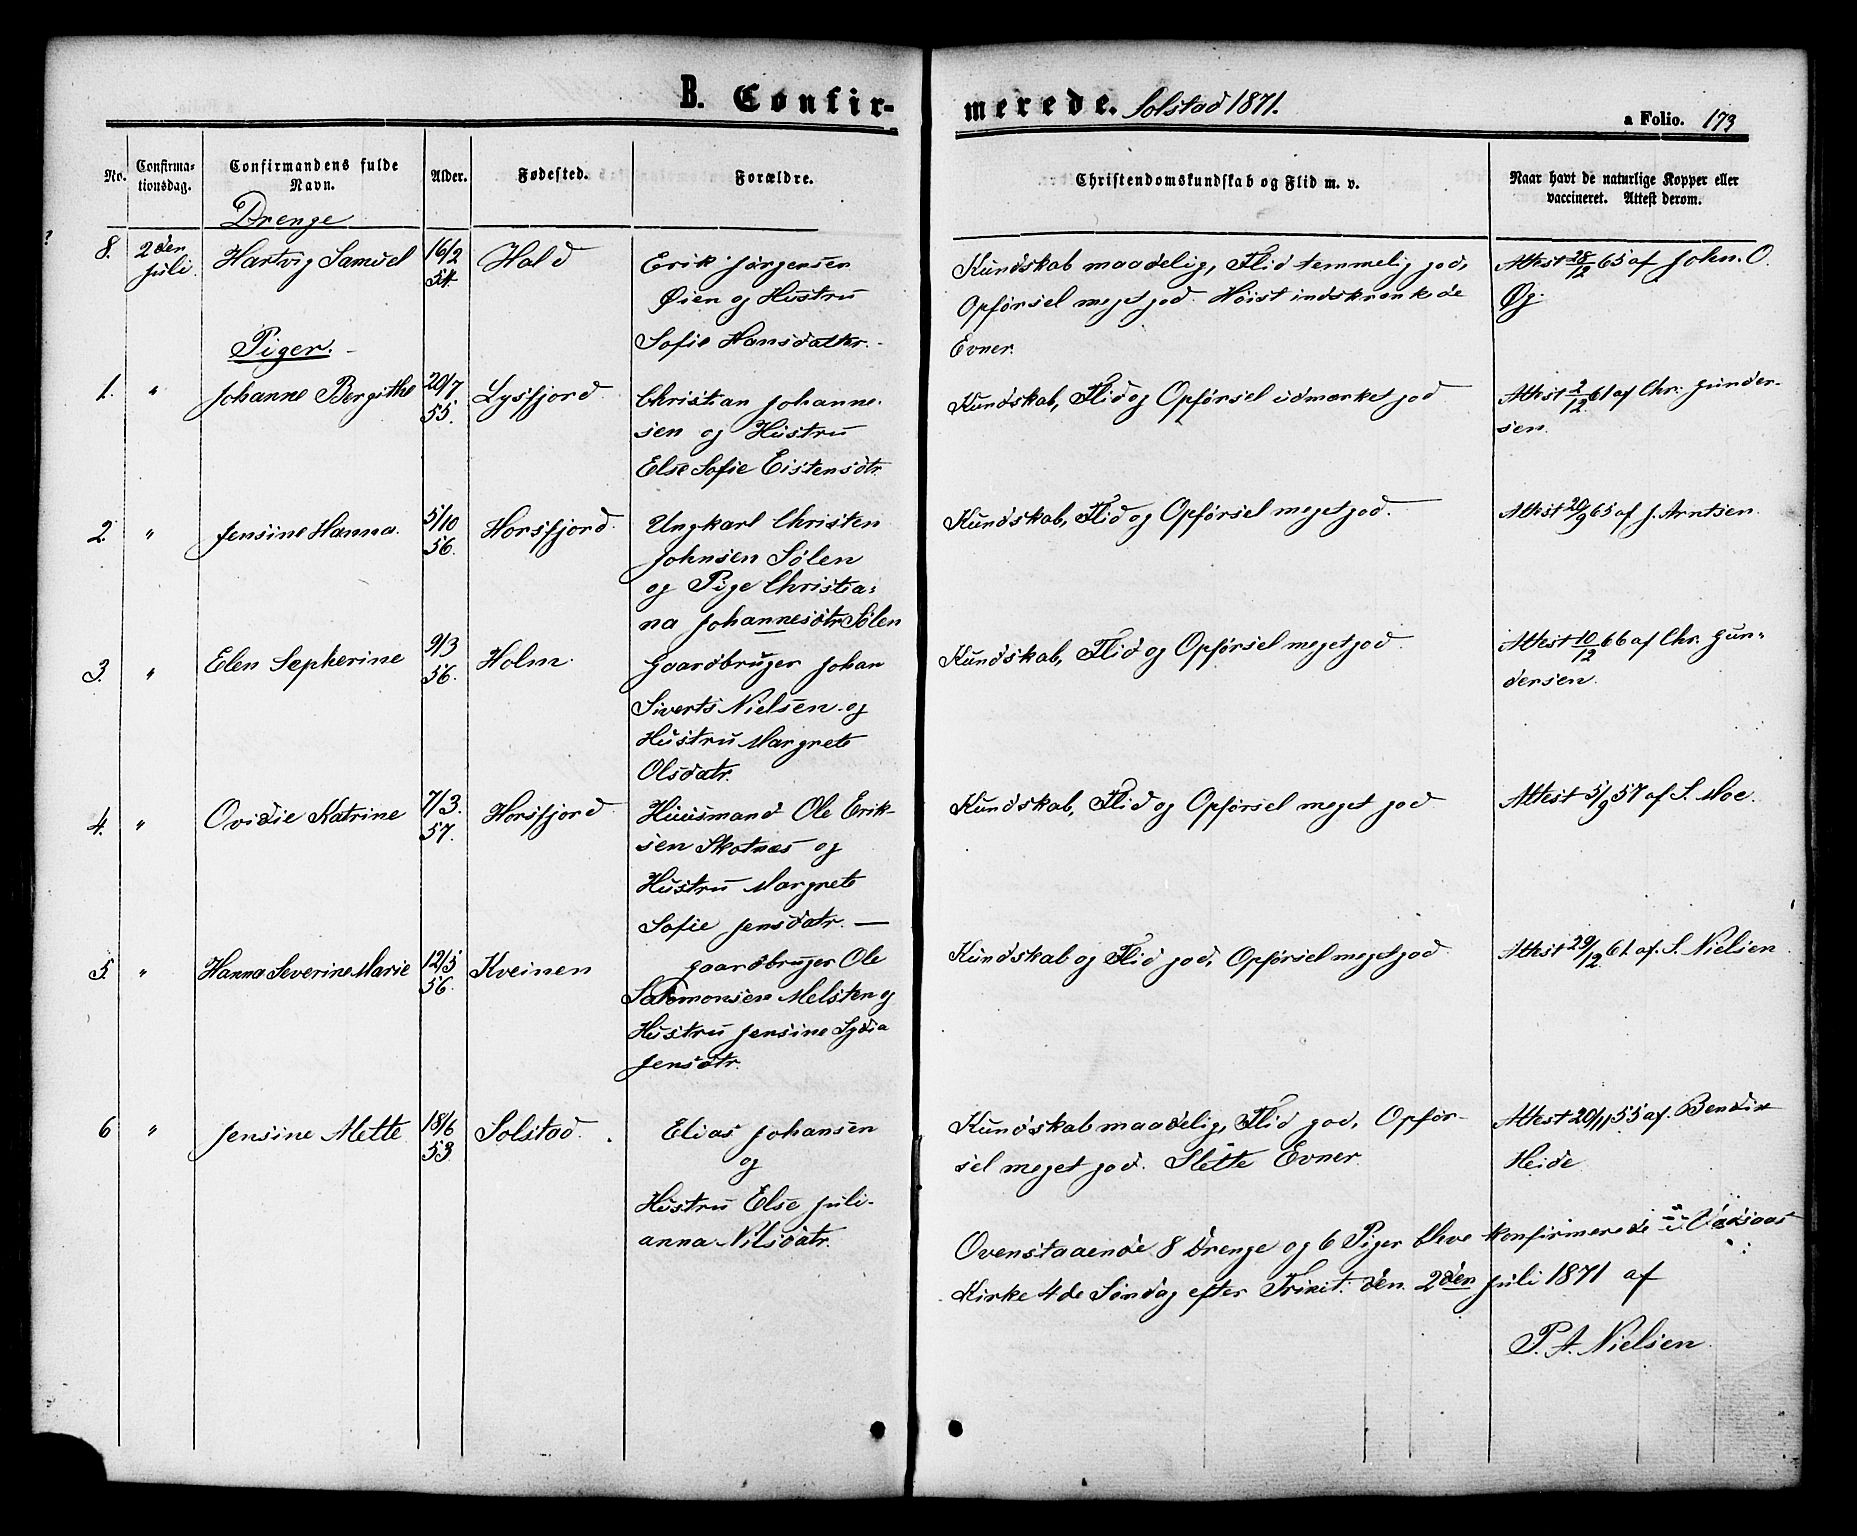 B. Confirmerede. Solstad 1871.
a Folio. 173
No. Confirmationsdag. Confirmandens fulde Navn. Alder. Fødested. Forældre. Christendomskundskab og Flid m. v. Naar havt de naturlige Kopper eller vaccineret. Attest derom.
Drenge
8. 2den Juli. Hartvig Samuel 16/2 54. Hald
Erik Jørgensen
Øien og Hustru
Sofie Hansdatter.
Kundskab maadelig, Flid temmelig god,
Opførsel meget god. Høist indskrænkede
Evner.
Attest 28/12 65 af John. O.
Øg.
Piger.
1. " Johanne Bergithe 20/7 55. Lysfjord
Christian Johanne-
sen og Hustru
Else Sofie Eistensdtr.
Kundskab, Flid og Opførsel udmærket god
Attest 2/12 61 af Chr. Gunder-
sen.
2. " Jensine Hanna. 5/10 56. Horsfjord.
Ungkarl Christen
Johnsen Sølen
og Pige Christia-
na Johannesdtr Sølen
Kundskab, Flid og Opførsel meget god.
Attest 20/9 65 af J. Arntsen.
3. " Elen Sepherine 9/3 56. Holm.
Gaardbruger Johan
Siverts Nielsen og
Hustru Margrete
Olsdatr.
Kundskab, Flid og Opførsel meget god.
Attest 10/12 66 af Chr. Gun-
dersen.
4. " Ovidie Katrine 7/3. 57. Horsfjord
Huusmand Ole Erik-
sen Skotnæs og
Hustru Margrete
Sofie Jensdatr. —
Kundskab, Flid og Opførsel meget god
Attest 5/9 57 af S. Moe.
5. " Hanna Severine Marie 12/5 56. Kveinen
Gaardbruger Ole
Salomonsen Melsten og
Hustru Jensine Lydia
Jensdtr.
Kundskab og Flid god, Opførsel meget god
Attest 29/12 61. af S. Nielsen
6 " Jensine Mette 18/6 53. Solstad.
Elias Johansen
og
Hustru Else Juli-
anna Nilsdatr.
Kundskab maadelig, Flid god, Opfør-
sel meget god. Slette Evner.
Attest 20/11 55 af. Bendix
Heide
Ovenstaaende 8 Drenge og 6 Piger bleve konfirmerede i Vadsaas
Kirke 4de Søndag efter Trinit. den 2den Juli 1871 af
P. A. Nielsen.